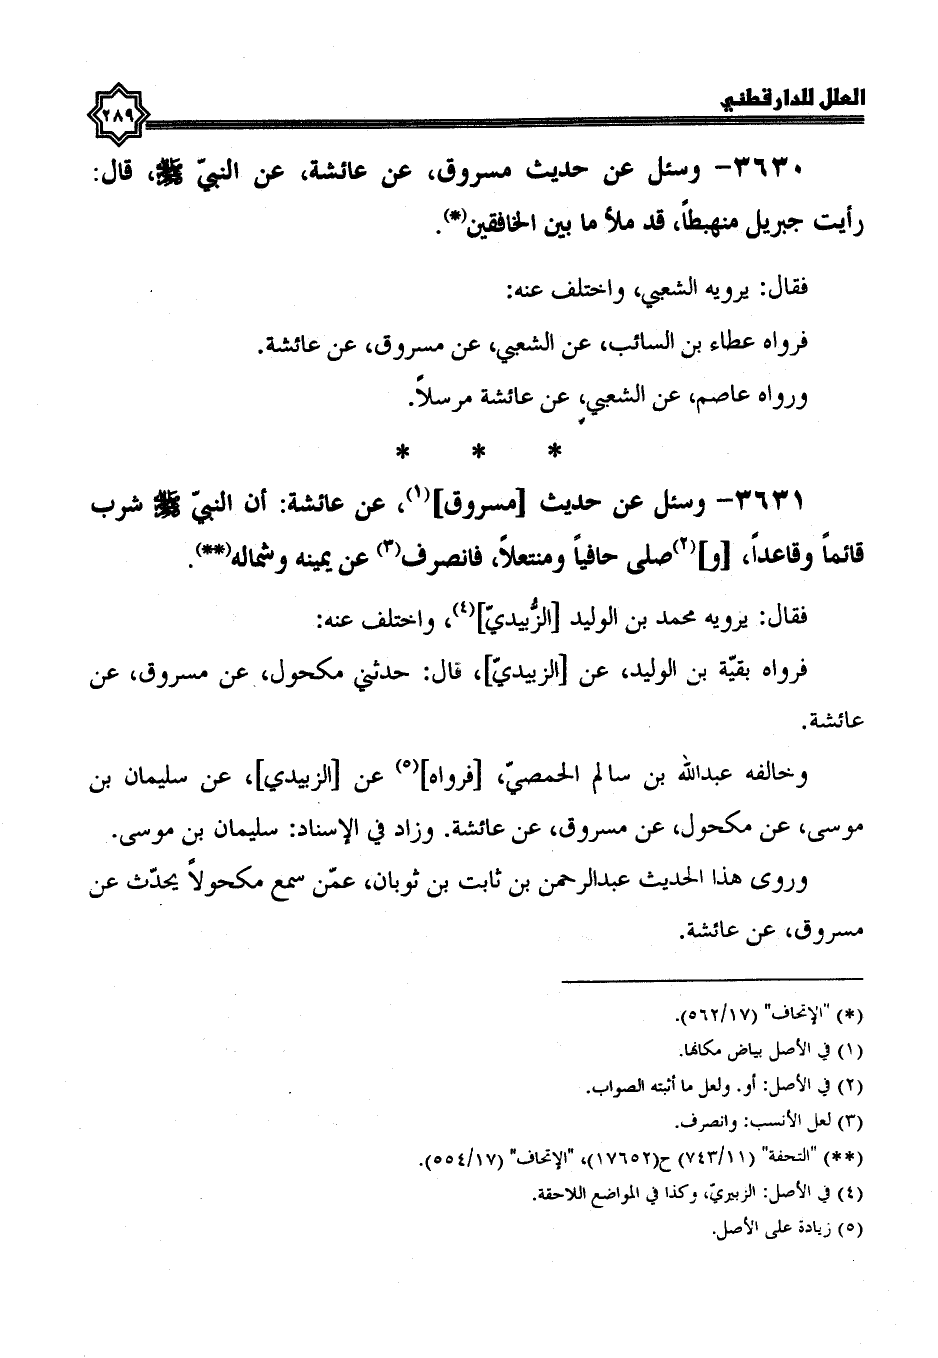 العلل للدارقطني
٢٨٩
٣٦٣٠- وسئل عن حديث مسروق، عن عائشة، عن النبيّ ﷺ، قال:
رأيت جبريل منهبطاً، قد ملأ ما بين الخافقين(*).
فقال: يرويه الشعبي، واختلف عنه:
فرواه عطاء بن السائب، عن الشعبي، عن مسروق، عن عائشة.
ورواه عاصم، عن الشعبي، عن عائشة مرسلاً.
* * *
٣٦٣١- وسئل عن حديث [مسروق](١)، عن عائشة: أن النبيّ ﷺ شرب
قائماً وقاعداً، [و](٢)صلى حافياً ومنتعلاً، فانصرف(٣) عن يمينه وشماله(**).
فقال: يرويه محمد بن الوليد [الزُّبيديّ](٤)، واختلف عنه:
فرواه بقيّة بن الوليد، عن [الزبيديّ]، قال: حدثني مكحول، عن مسروق، عن
عائشة.
وخالفه عبدالله بن سالم الحمصيّ، [فرواه](٥) عن [الزبيدي]، عن سليمان بن
موسى، عن مكحول، عن مسروق، عن عائشة. وزاد في الإسناد: سليمان بن موسى.
وروى هذا الحديث عبدالرحمن بن ثابت بن ثوبان، عمّن سمع مكحولاً يحدّث عن
مسروق، عن عائشة.
(*) "الإتحاف" (٥٦٢/١٧).
(١) في الأصل بياض مكانها.
(٢) في الأصل: أو. ولعل ما أثبته الصواب.
(٣) لعل الأنسب: وانصرف.
(**) "التحفة" (٧٤٣/١١) ح(١٧٦٥٢)، "الإتحاف" (٥٥٤/١٧).
(٤) في الأصل: الزبيريّ، وكذا في المواضع اللاحقة.
(٥) زيادة على الأصل.